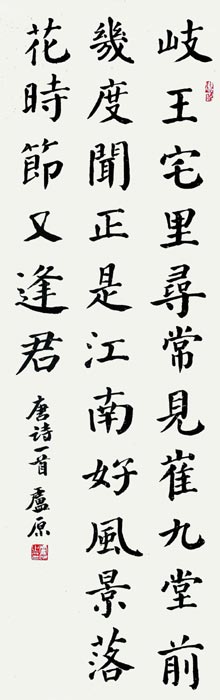 岐王宅里尋常見崔九堂前
幾度聞正是江南好風景落
花時節又逢君
唐诗一首 盧原